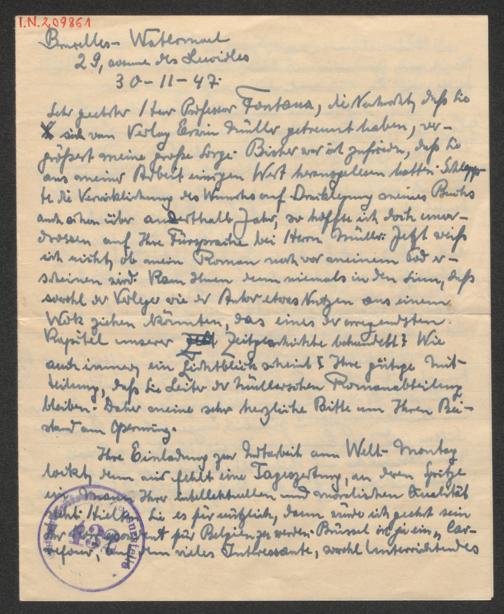 I.N. 209861
Bruxelles - Watermael
29, avenue des
30-11-47.
Sehr geehrter Herr Professor Fontana, die Nachricht, daß Sie
sich vom Verlag Erwin Müller getrennt haben, ver-
größert meine große Sorge. Bisher war ich zufrieden, daß Sie
aus meiner Arbeit einigen Wert herausgelesen hatten. Schlepp-
te die Verwirklichung des Wunsches auf Drucklegung meines Buchs
auch schon über anderthalb Jahr, so hoffte ich doch unver-
drossen auf Ihre Fürsprache bei Herrn Müller. Jetzt weiß
ich nicht, ob mein Roman noch vor meinem Tod er-
scheinen wird. Kam Ihnen denn niemals in den Sinn, daß
sowohl der Verleger wie der Autor etwas Nutzen aus einem
Werk ziehen könnten, das eines der erregendsten
Kapitel unserer Zeitgeschichte behandelt? Wie
auch immer, ein Lichtblick scheint Ihre gütige Mit-
teilung, daß Sie Leiter der Müllerschen Romanabteilung
bleiben. Daher meine sehr herzliche Bitte um Ihren Bei-
stand am
Ihre Einladung zur Mitarbeit am Welt-Montag
lockt, denn mir fehlt eine Tageszeitung, an deren Spitze
ein Mann Ihrer intellektuellen und moralischen Qualität
steht. Hielten Sie es für nützlich, dann würde ich gerne Ihr
Korrespondent für Belgien werden. Brüssel ist ja ein „Car-
refour", auf dem vieles Interessante, wohl Unterrichtendes